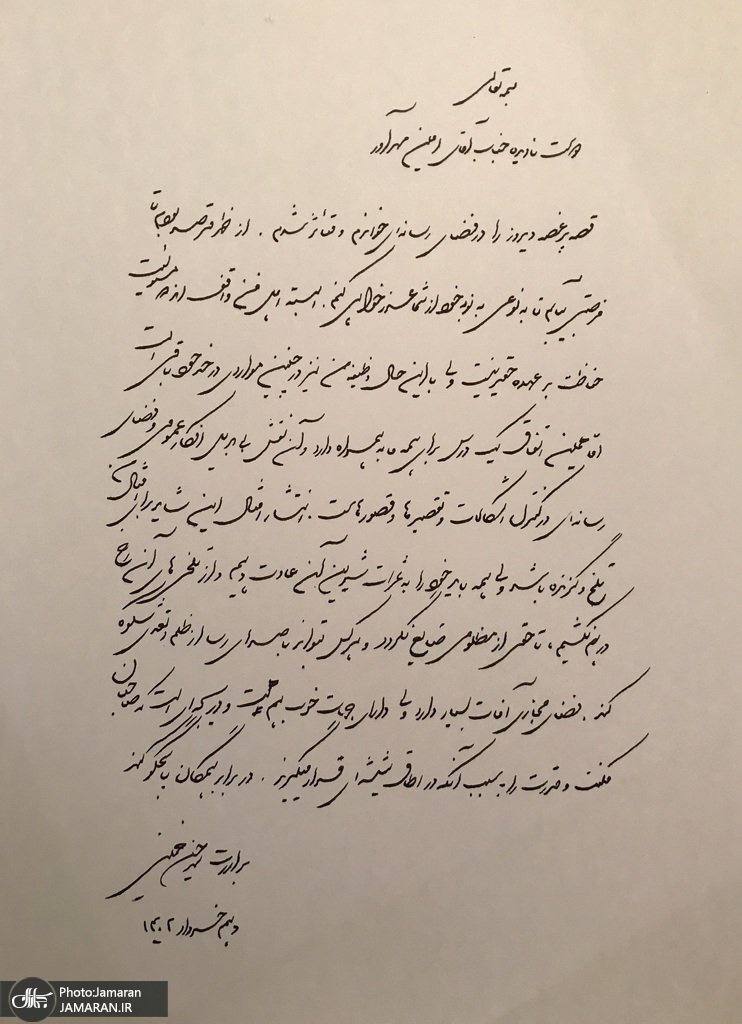 بسمه تعالی
دوست نادیده جناب آقای امین مهرآور
قصه پرغصه دیروز را در فضای رسانه‌ای خواندم و متأثر شدم. از خدا فرصت
فرصتی بیابم تا به نوعی به نوبه خود از شما عذرخواهی کنم. البته اهل فن واقف‌اند مسئولیت
حفاظت بر عهده حقیر نیست ولی با این حال وظیفه من نیز در چنین مواردی در حد خود باقی است
اما همین اتفاق یک درس برای همه ما به همراه دارد و آن نقش بی‌بدیل افکار عمومی و فضای
رسانه‌ای در کنترل اشکالات و تقصیرها و قصورهاست. انتشار امثال این شاید برای امثال ما
تلخ و گزنده باشد ولی همه باید خود را به ثمرات شیرین آن عادت دهیم و از تلخی‌های آن رخ
درهم نکشیم، تا حقی از مظلومی ضایع نگردد و هرکس بتواند با صدای رسا از ظلم و تعدی شکوه
کند. فضای مجازی آفات بسیار دارد ولی دارای جهات خوب هم هست و دریچه‌ای است که صاحبان
مکنت و قدرت را به سبب آنکه در اطاق شیشه‌ای قرار میگیرند. در برابر همگان پاسخگو کند
برادرت سید حسن خمینی
دهم خرداد ۱۴۰۲
Photo:Jamaran
JAMARAN.IR
جماران